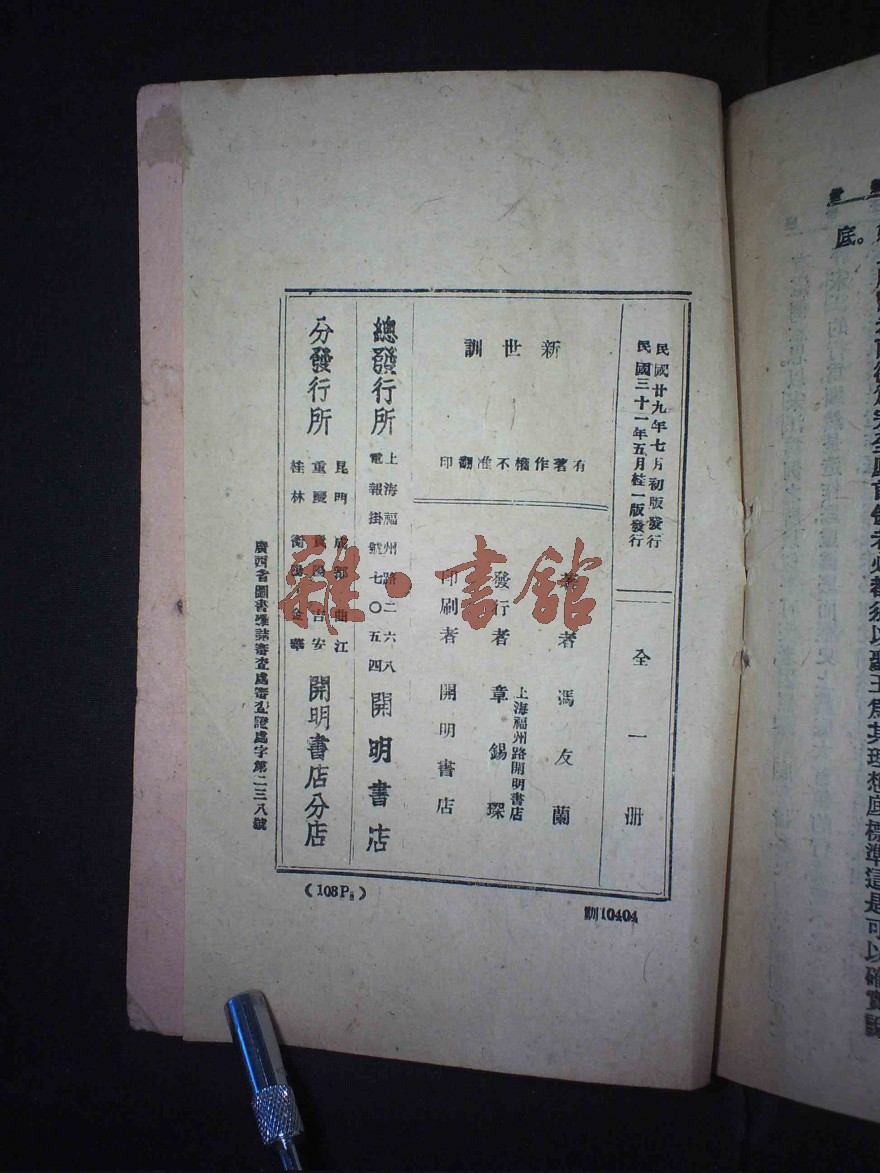 民國廿九年七月初版發行
民國三十一年五月桂一版發行
全一册
新世訓
有著作權不准翻印
著者 馮友蘭
發行者 章錫琛
上海福州路開明書店
印刷者 開明書店
總發行所 上海福州路二六八 開明書店
電報掛號七〇五四
分發行所 開明書店分店
成都 曲江
重慶 貴陽 吉安
桂林 衡陽 金華
廣西省圖書雜誌審查處審查證處字第二三八號
(108P.)
訓10404
雜·書館
底。